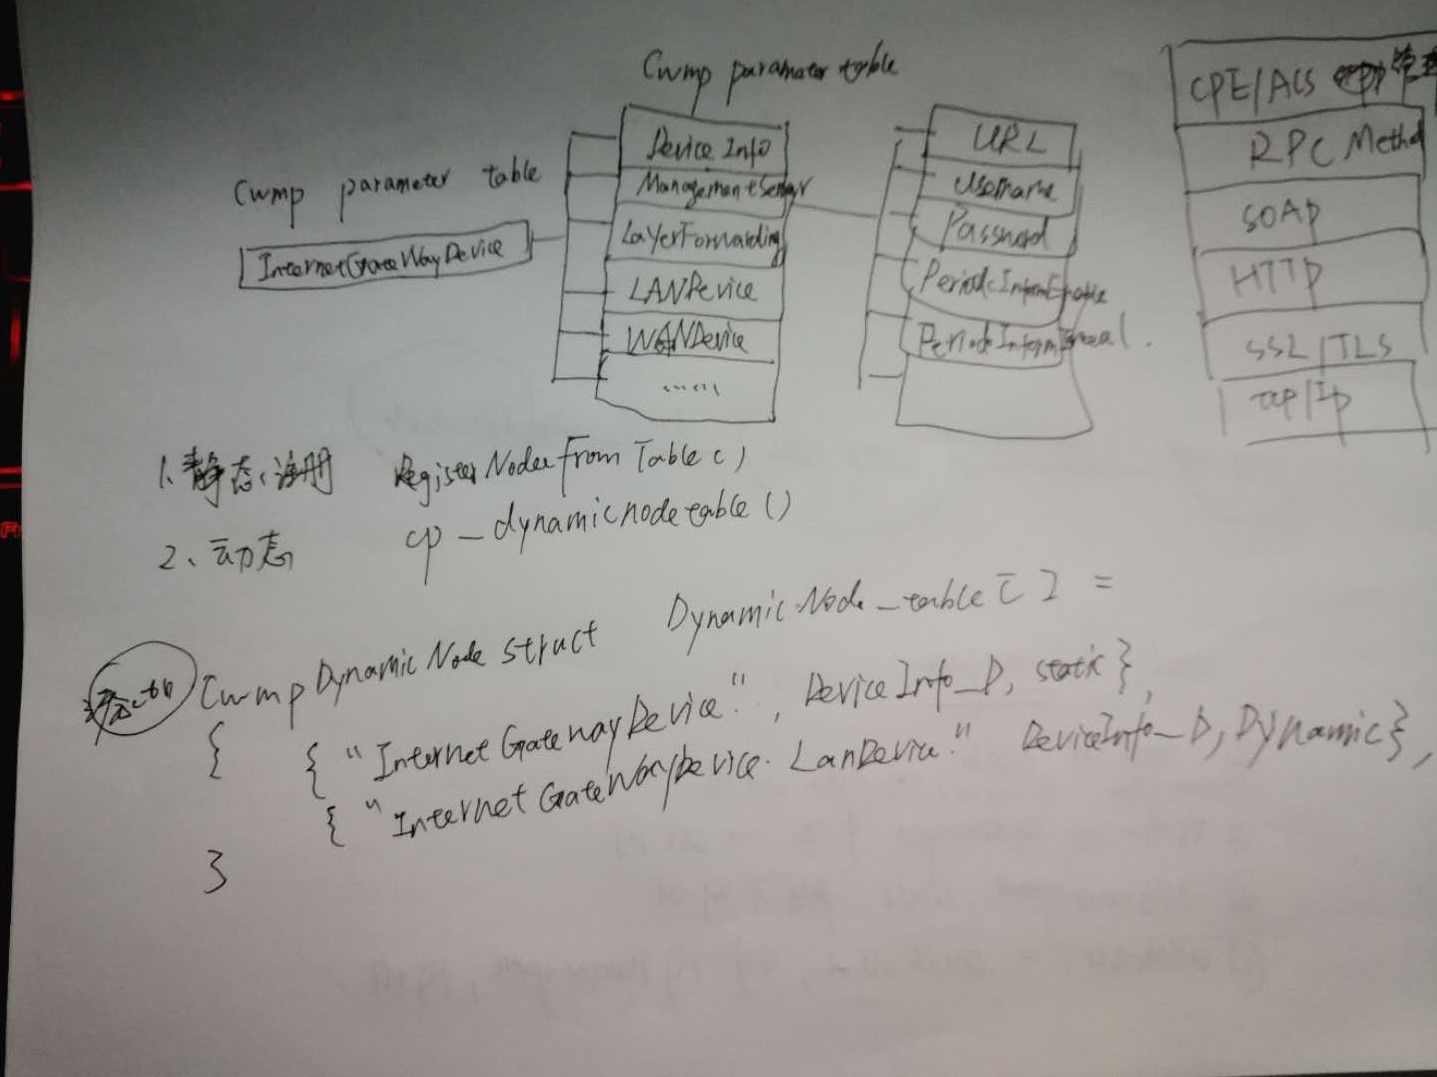 Cwmp parameter table
Cwmp parameter table
InternetGateWayDevice
Device Info
ManagementServer
LayerForwarding
LANDevice
WANDevice
......
URL
Username
Password
PeriodicInformEnable
PeriodicInformInterval.
CPE/ACS
RPC Method
SOAP
HTTP
SSL/TLS
TCP/IP
1. 静态注册 RegisterNodesFromTable()
2、动态 cp_dynamicnodetable()
CwmpDynamicNode struct DynamicNode_table[] =
{ { "InternetGatewayDevice.", DeviceInfo_D, static},
{ "InternetGateWayDevice. LanDevice." DeviceInfo_D, Dynamic},
}